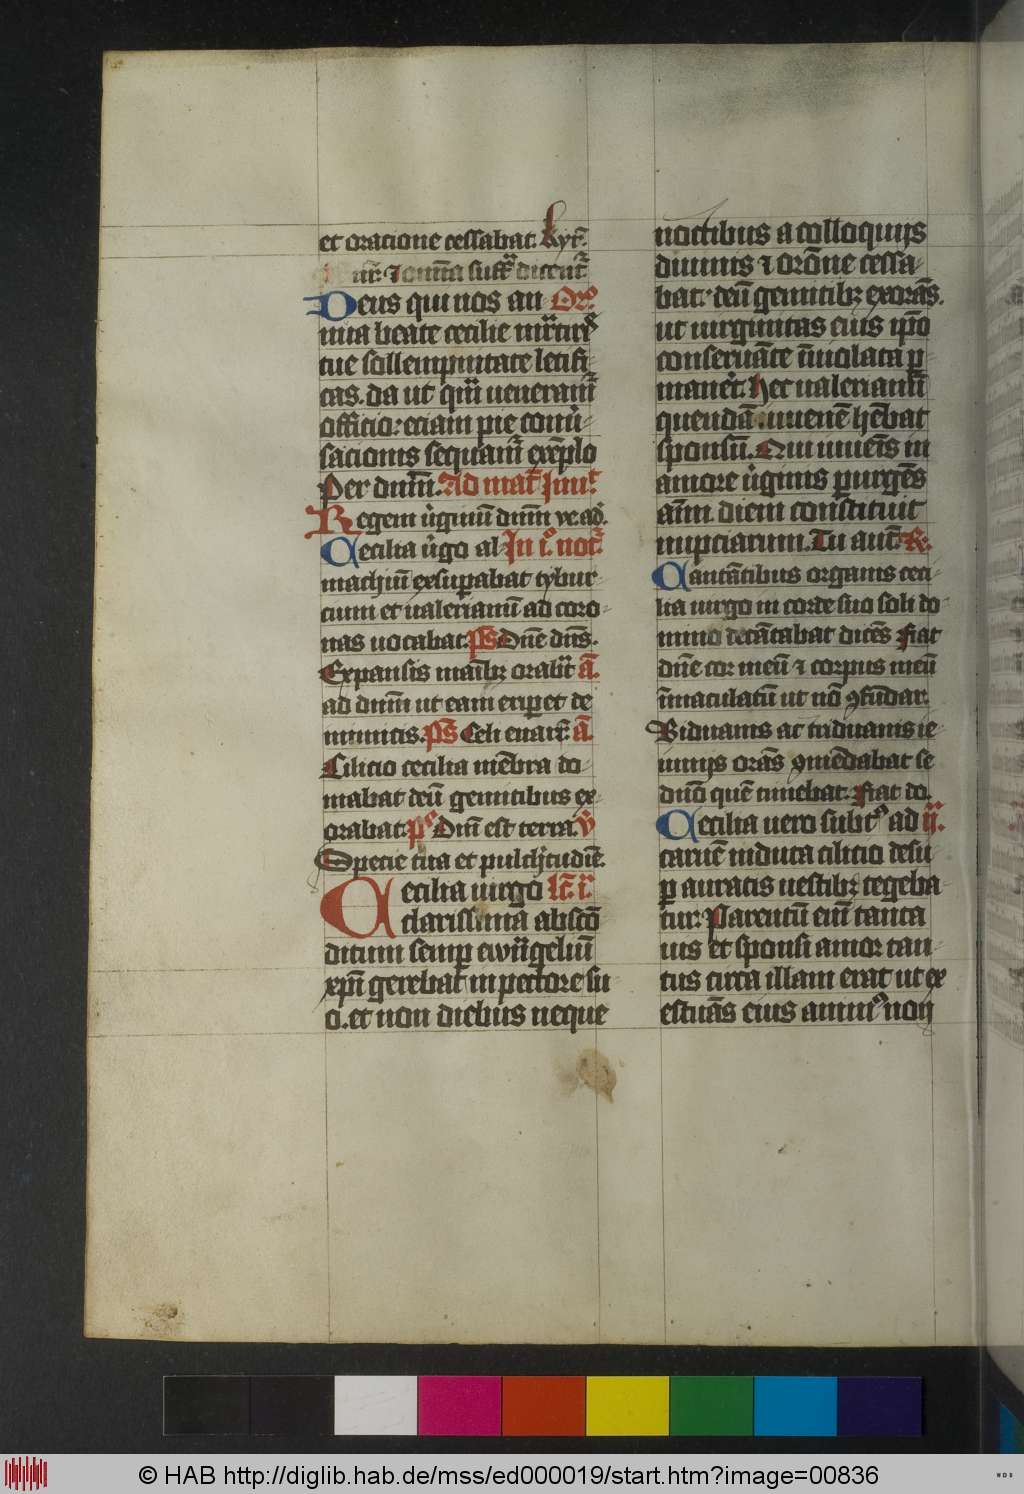 et oracione cessabat. kyr̄.
Deus qui nos an Or̄o
nua beate cecilie mr̄tir̄s
tue sollempnitate letifi-
cas. da ut qm̄ ueneram̄
officio: eciam pie conu̇-
sacionis sequam̄ exēplo
Per dnm̄. Ad mat̄ Inuit.
Regem u̇ginū dnm̄ ve ad.
Cecilia u̇go al- In i. noct̄.
machiū exsuꝑabat tybur-
cium et ualerianū ad coro-
nas uocabat. pS Dn̄e dns̄.
Expansis manibꝫ orab̄t a̅.
ad dnm̄ ut eam eriꝑet de
inimicis. pS Celi enar̄. a̅.
Cilicio cecilia mēbra do-
mabat deū gemitibus ex-
orabat. pS Dn̄i est terra. v̄
Specie tua et pulchr̄itudīe.
Cecilia uirgo lc̄ i.
clarissima abscō
ditum semꝑ ewn̄geliū
xp̄i gerebat in pectore su-
o. et non diebus neque
noctibus a colloquijs
diuinis ⁊ orōne cessa-
bat: deū gemitibꝫ exorās.
ut uirginitas eius ip̄o
conseruāte īuiolata ꝑ-
maner̄t. hec ualerianū
quendā iuuenē hēbat
sponsū. Qui iuueīs in
amore u̇ginis ꝑurgēs
aīm. diem constituit
nupciarum. Tu aut̄. R̄.
Cantātibus organis ceci-
lia uirgo in corde suo soli do-
mino decātabat dicēs fiat
dn̄e cor meū ⁊ corpus meū
īmaculatū ut nō ꝯfūdar.
Biduanis ac triduanis ie-
iunijs orās ꝯmēdabat se
dn̄o quē timebat. Fiat do.
Cecilia uero subt⁹ ad ij.
carnē induta cilicio desu-
ꝑ auratis uestibꝫ tegeba-
tur: Parentū enī tanta
uis et sponsi amor tan-
tus circa illam erat ut ex
estuās eius animi⁹ non
© HAB http://diglib.hab.de/mss/ed000019/start.htm?image=00836